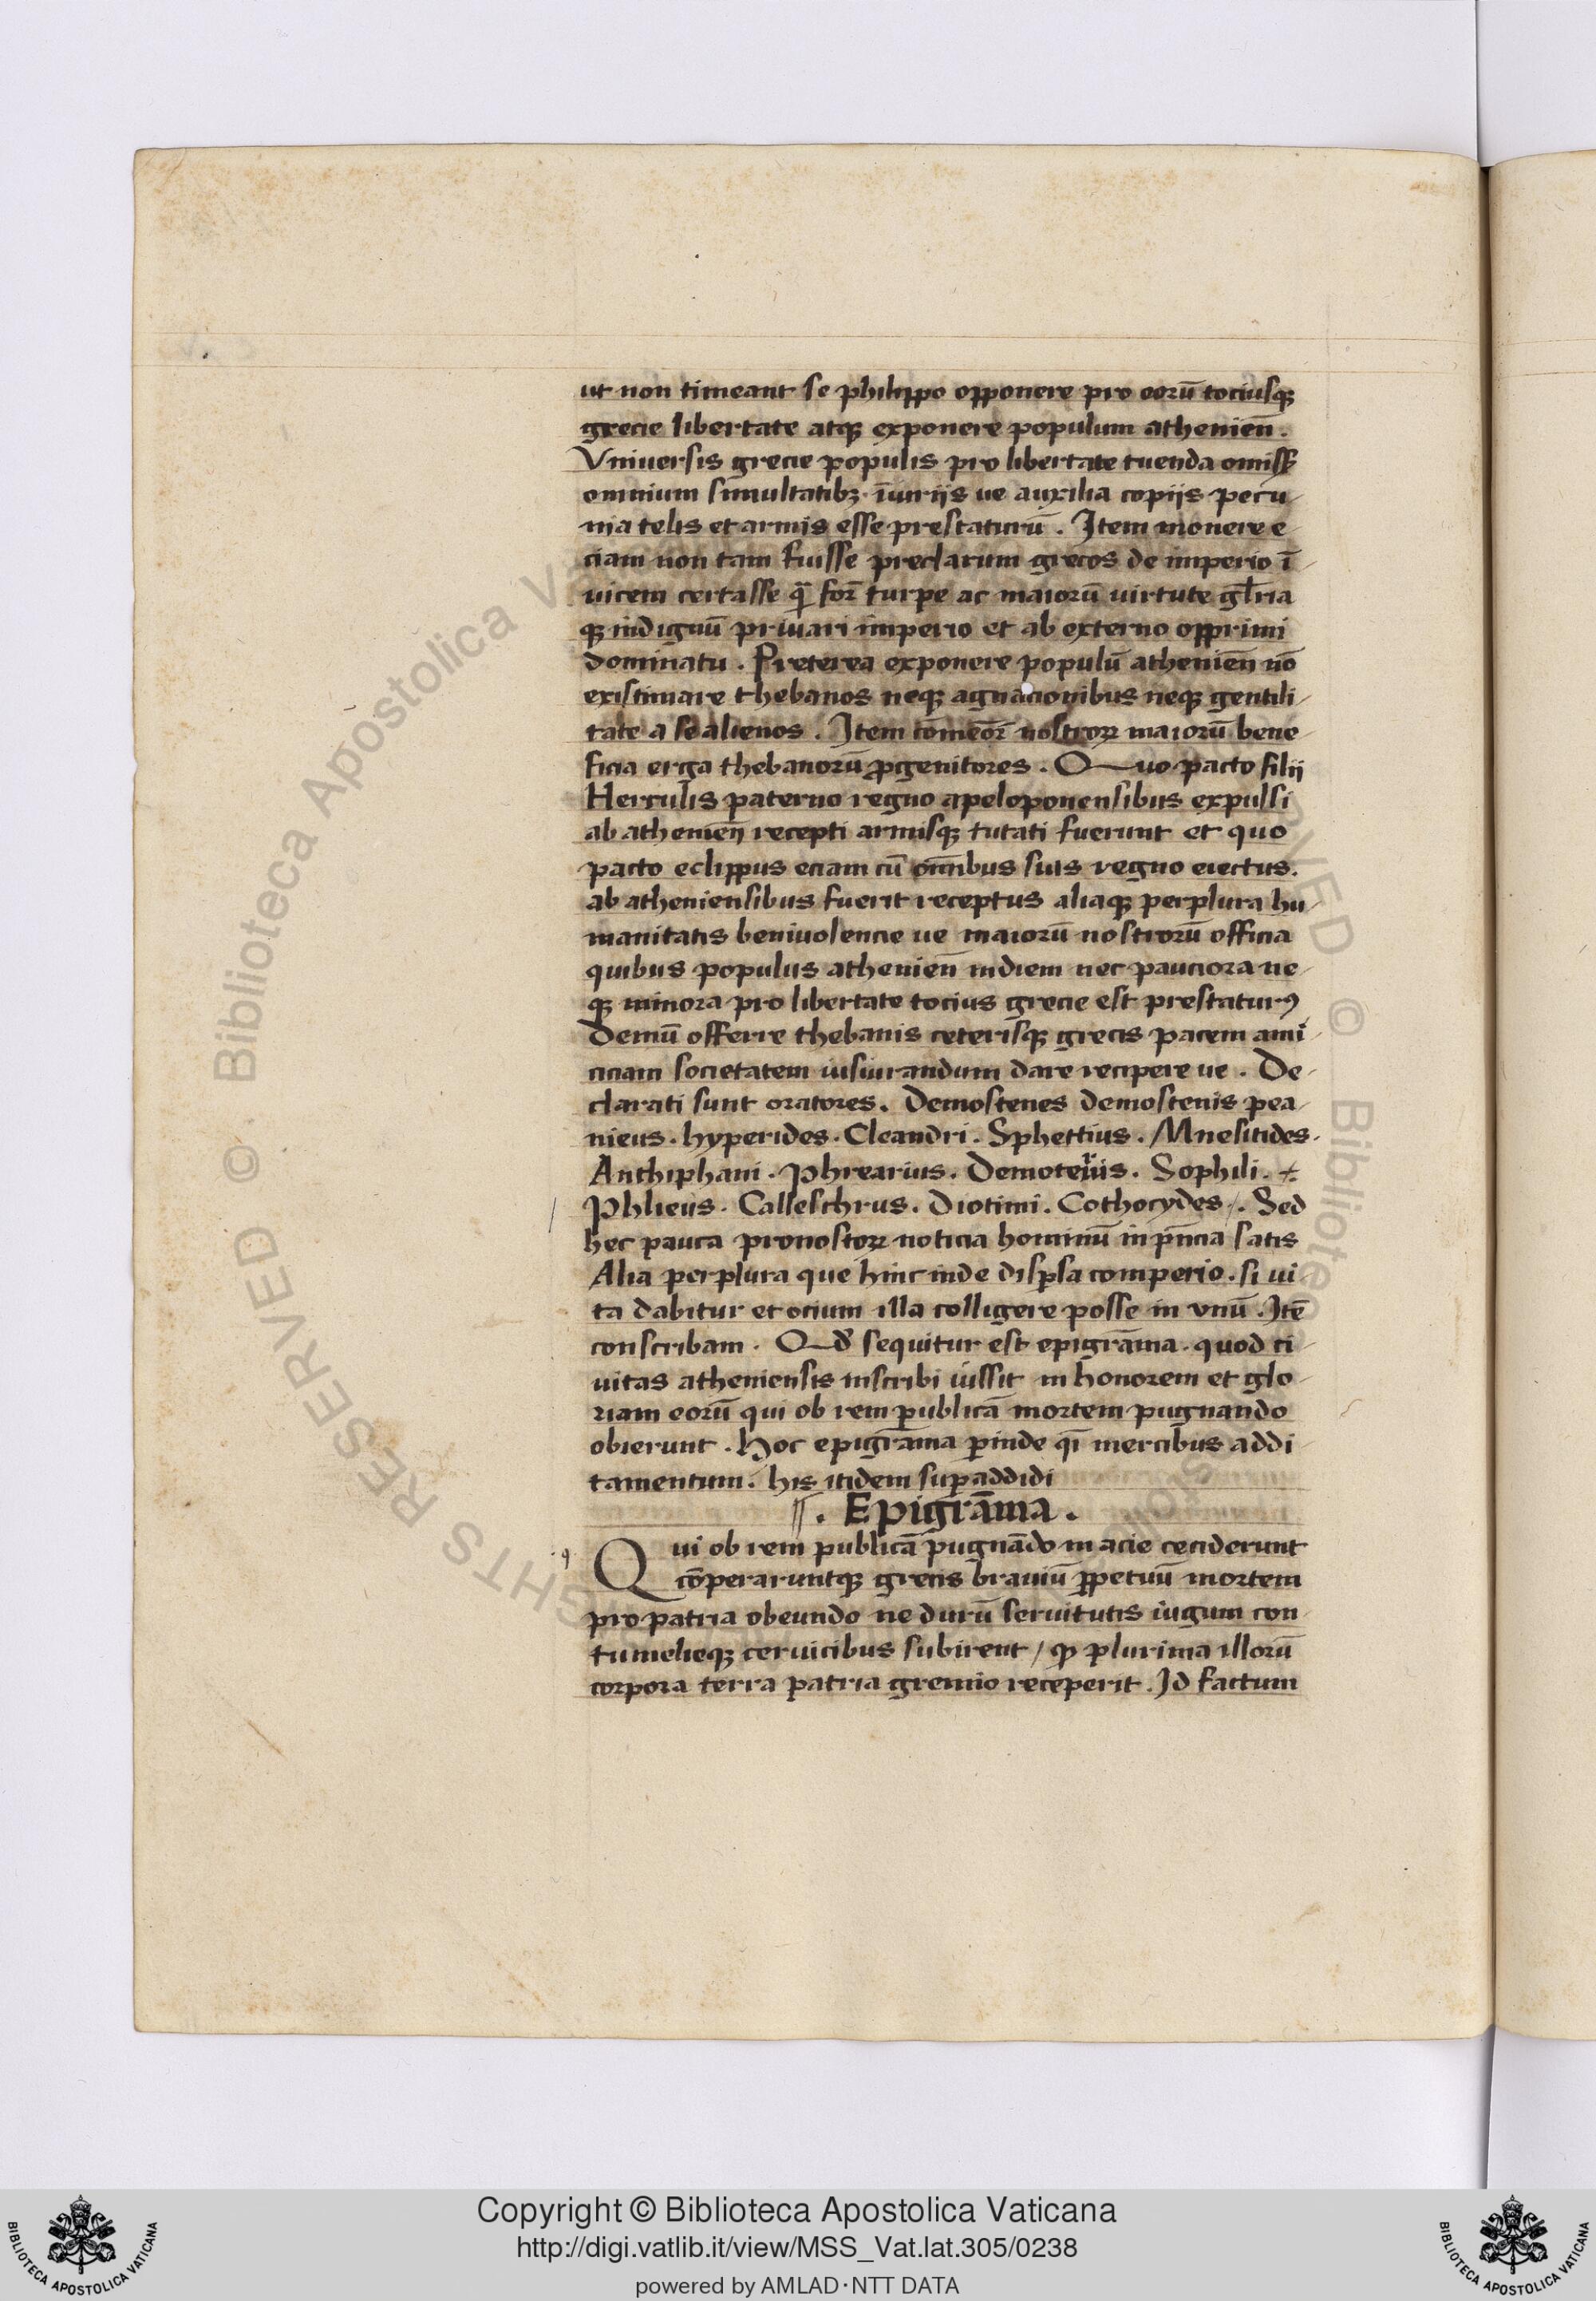 ut non timeant se philippo opponere pro eorū tociusqꝫ
grecie libertate atqꝫ exponere populum athenien̄.
Vniuersis grecie populis pro libertate tuenda omiss
omnium simultatibꝫ. īiuriis ue auxilia copiis pecu-
nia telis et armis esse prestaturū. Item monere e-
ciam non tam fuisse preclarum grecos de imperio ī
uicem certasse q̄ for̄ turpe ac maiorū uirtute gl̄ria
qꝫ indignū priuari imperio et ab externo opprimi
dominatu. Preterea exponere populū athenien̄ nō
existimare thebanos neqꝫ agnacionibus neqꝫ gentili-
tate a se alienos. Item com̄eor̄ nostroꝝ maiorū bene
ficia erga thebanorū ꝓgenitores. Quo pacto filii
Herculis paterno regno apeloponensibus expulsi
ab athenien̄ recepti armisqꝫ tutati fuerunt et quo
pacto eclippus eciam cū om̄ibus suis regno eiectus.
ab atheniensibus fuerit receptus aliaqꝫ perplura hu-
manitatis beniuolencie ue maiorū nostrorū officia
quibus populus athenien̄ indiem nec pauciora ne-
qꝫ minora pro libertate tocius grecie est prestaturꝰ
Demū offerre thebanis ceterisqꝫ grecis pacem ami
ciciam societatem iusiurandum dare recipere ue. De-
clarati sunt oratores. Demostenes demostenis pea-
nieus. hyperides. Cleandri. Sphettius. Mnesitides.
Anthiphani. Phrearius. Demotexiis. Sophili.
Phlieus. Calleschrus. Diotimi. Cothocydes. Sed
hec pauca pronostoꝝ noticia hominū in pn̄cia satis
Alia perplura que hinc inde disꝑsa comperio. si ui-
ta dabitur et ocium illa colligere posse in vnū. Itē
conscribam. Qd̄ sequitur est epigrāma. quod ci-
uitas atheniensis inscribi iussit in honorem et glo-
riam eorū qui ob rem ꝑublicā mortem pugnando
obierunt. Hoc epigrāma ꝑinde qī mercibus addi-
tamentum. his itidem suꝑaddidi
. Epigrāma.
Qui ob rem publicā pugnādo in acie ceciderunt
cōperaruntqꝫ grecis brauiū ꝑpetuū mortem
pro patria obeundo ne durū seruitutis iugum con-
tumelieqꝫ ceruicibus subirent / qꝫ plurima illorū
corpora terra patria gremio receperit. Id factum
Copyright © Biblioteca Apostolica Vaticana
http://digi.vatlib.it/view/MSS_Vat.lat.305/0238
powered by AMLAD·NTT DATA